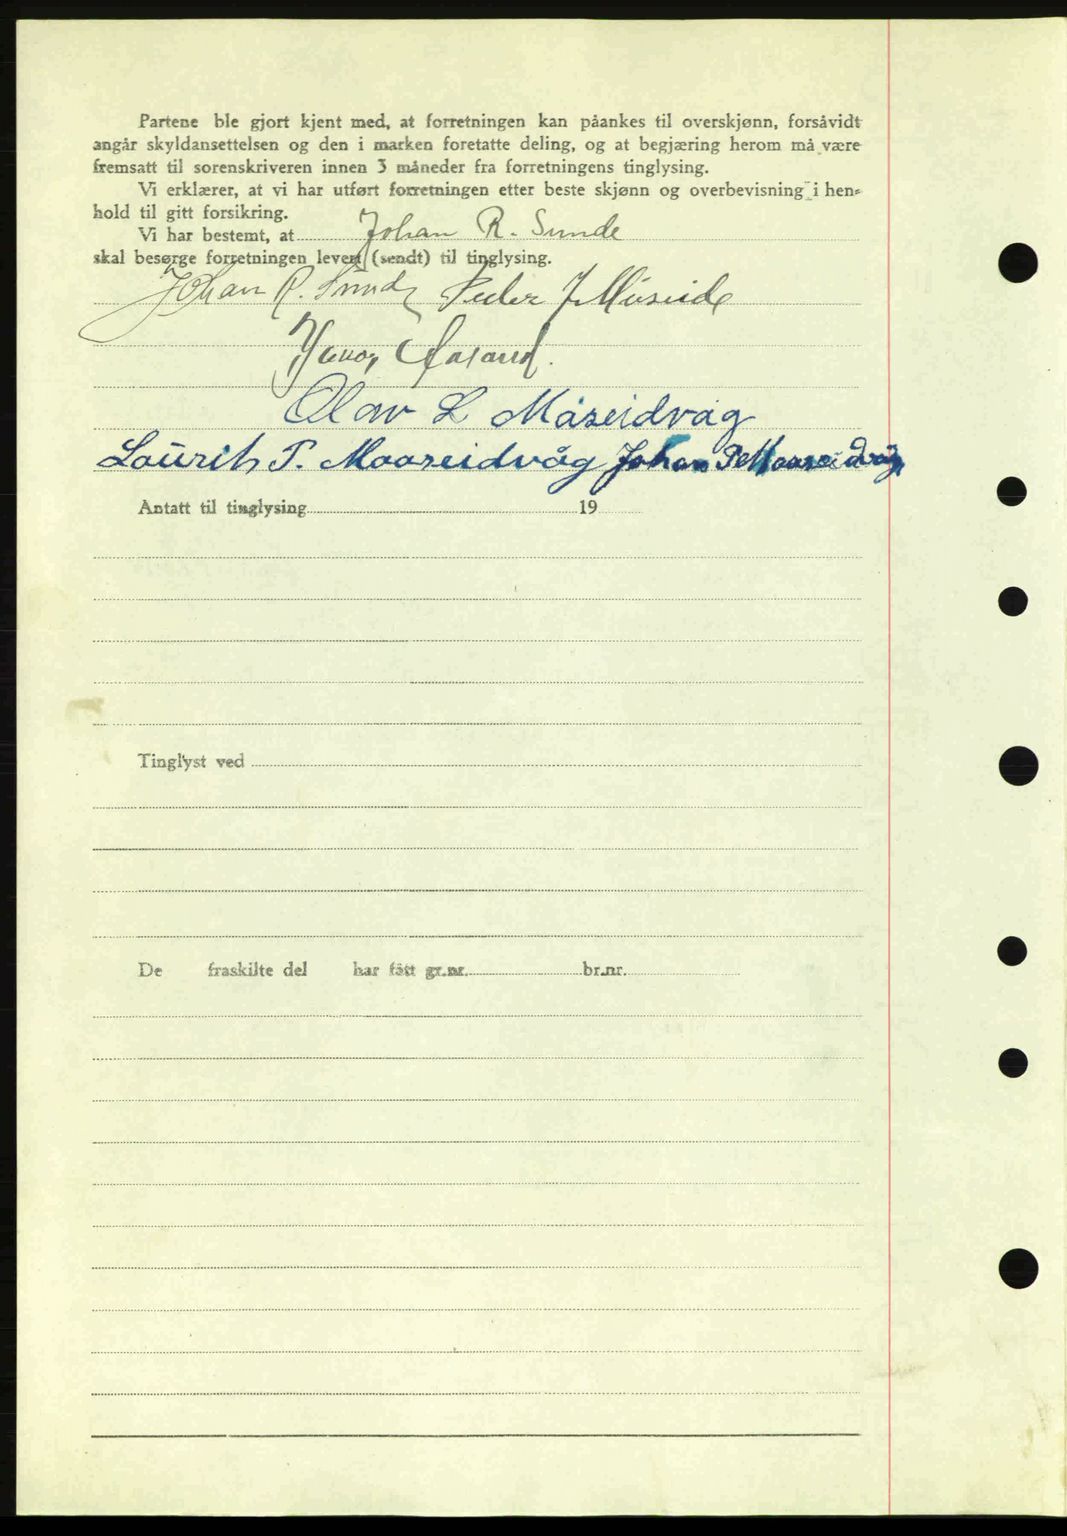 Partene ble gjort kjent med, at forretningen kan påankes til overskjønn, forsåvidt
angår skyldansettelsen og den i marken foretatte deling, og at begjæring herom må være
fremsatt til sorenskriveren innen 3 måneder fra forretningens tinglysing.
Vi erklærer, at vi har utført forretningen etter beste skjønn og overbevisning i hen-
hold til gitt forsikring.
Vi har bestemt, at Johan R. Sunde
skal besørge forretningen levert (sendt) til tinglysing.
Johan R. Sunde Peder J Måseide
Aasand.
Olav L Måseidvåg
Laurits P. Maaseidvåg Johan P Maaseidvåg
Antatt til tinglysing 19
Tinglyst ved
De fraskilte del har fått gr.nr. br.nr.